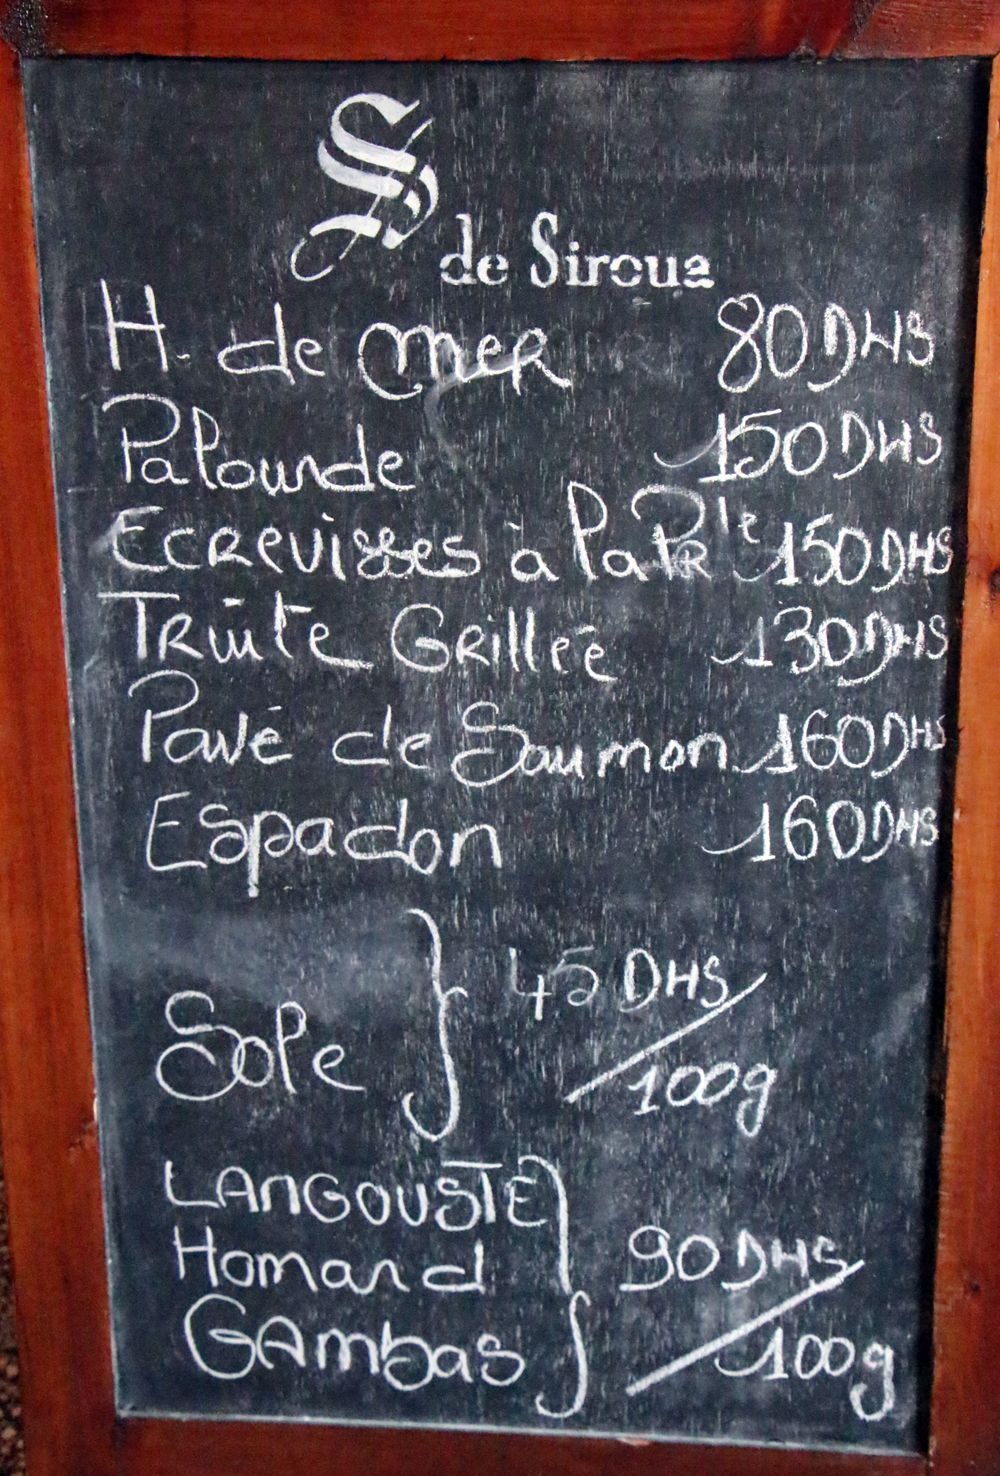 S de Siroua
H. de mer 80 DHS
Palourde 150 DHS
Ecrevisses à la Pl'e 150 DHS
Truite Grillée 130 DHS
Pavé de Saumon 160 DHS
Espadon 160 DHS
Sole } 45 DHS / 100g
LANGOUSTE
Homard
GAmbas } 90 DHS / 100g